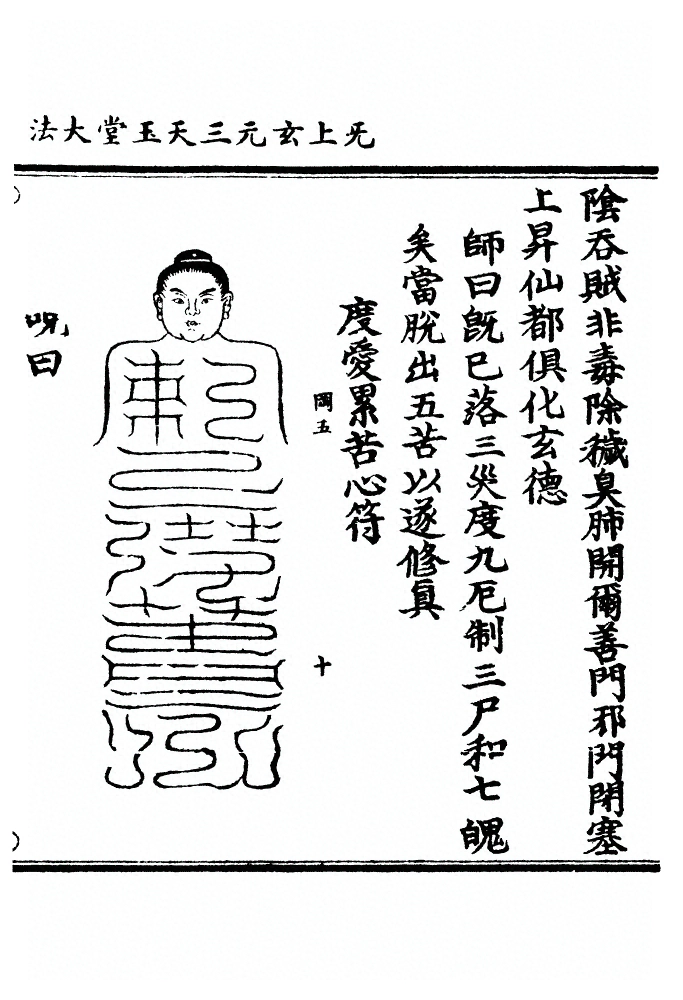 法大堂玉天三元玄上旡
陰吞賊非毒除穢臭肺開爾善門邪門閉塞
上昇仙都俱化玄德
師曰旣已落三災度九厄制三尸和七魄
矣當脫出五苦以遂修真
度愛累苦心符
岡五
十
呪曰